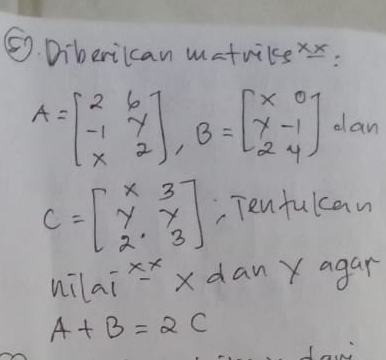 5. Diberikan matriks xx :
A = [2 6
-1 y
x 2], B = [x 0
y -1
2 4] dan
C = [x 3
y y
2 3] ; Tentukan
nilai xx x dan y agar
A + B = 2 C
dari